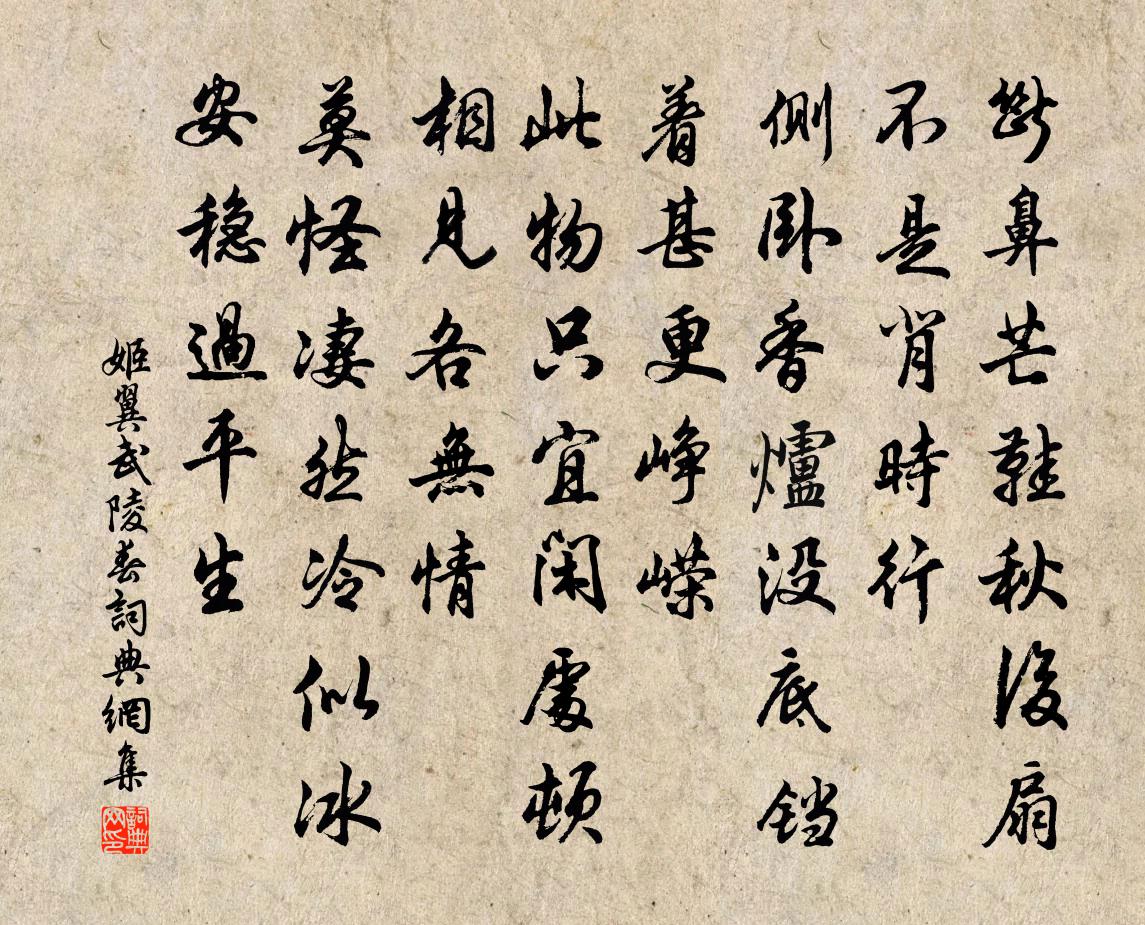 斷鼻芒鞋秋後扇
不是肖時行
側卧香爐没底铛
着甚更峥嵘
此物只宜閑處頓
相見各無情
莫怪凄然冷似冰
安穏過平生
姬翼武陵春詞典網集
詞典網印